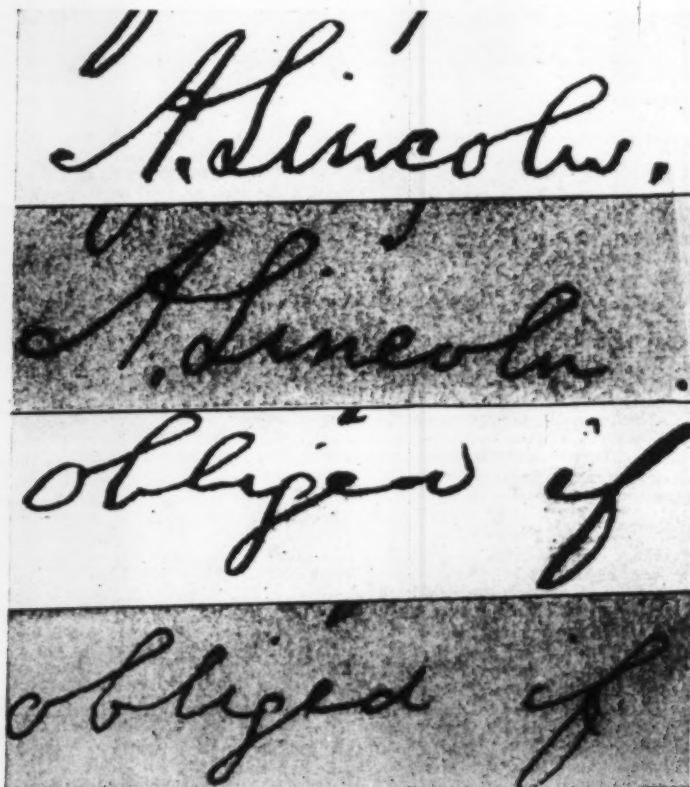 A. Lincoln.
A. Lincoln.
obliged if
obliged if